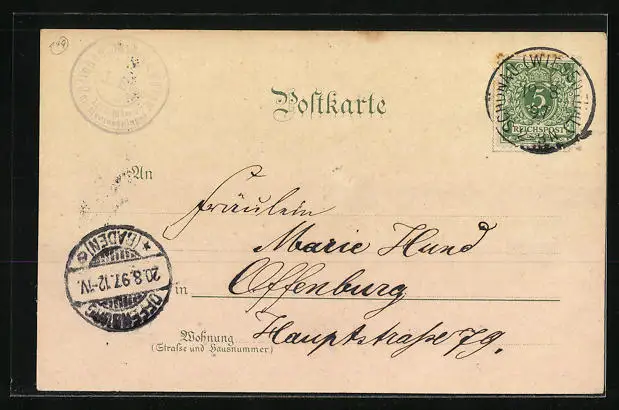 Postkarte
SCHÖNAU (WIESENTHAL)
5
REICHSPOST
An
Fräulein
Marie Hund
in Offenburg
Wohnung
(Straße und Hausnummer)
Hauptstraße 79.
OFFENBURG
20.8.97.12-1V.
* (BADEN)